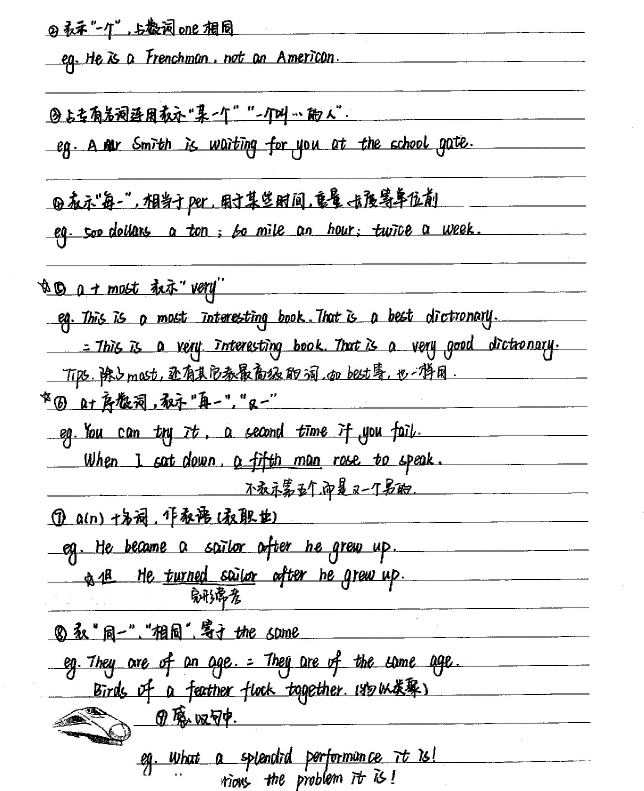 ②表示"一个",与数词one相同
eg. He is a Frenchman, not an American.
③与专有名词连用表示"某一个""一个叫…的人".
eg. A Mr Smith is waiting for you at the school gate.
④表示"每一",相当于per,用于某些时间,重量 长度等单位前
eg. 500 dollars a ton; 60 mile an hour; twice a week.
☆⑤ a + most 表示"very"
eg. This is a most interesting book. That is a best dictronary.
= This is a very interesting book. That is a very good dictronary.
Tips. 除了most,还有其它表最高级的词,如best等,也一样用.
☆⑥ a+序数词,表示"再一","又一"
eg. You can try it, a second time if you fail.
When I sat down, a fifth man rose to speak.
不表示第五个,而是又一个另的.
⑦ a(n) +名词,作表语(表职业)
eg. He became a sailor after he grew up.
☆但 He turned sailor after he grew up.
完形常考
⑧表"同一"、"相同",等于 the same
eg. They are of an age. = They are of the same age.
Birds of a feather flock together. (物以类聚)
⑨感叹句中.
eg. What a splendid performance it is!
rious the problem it is!